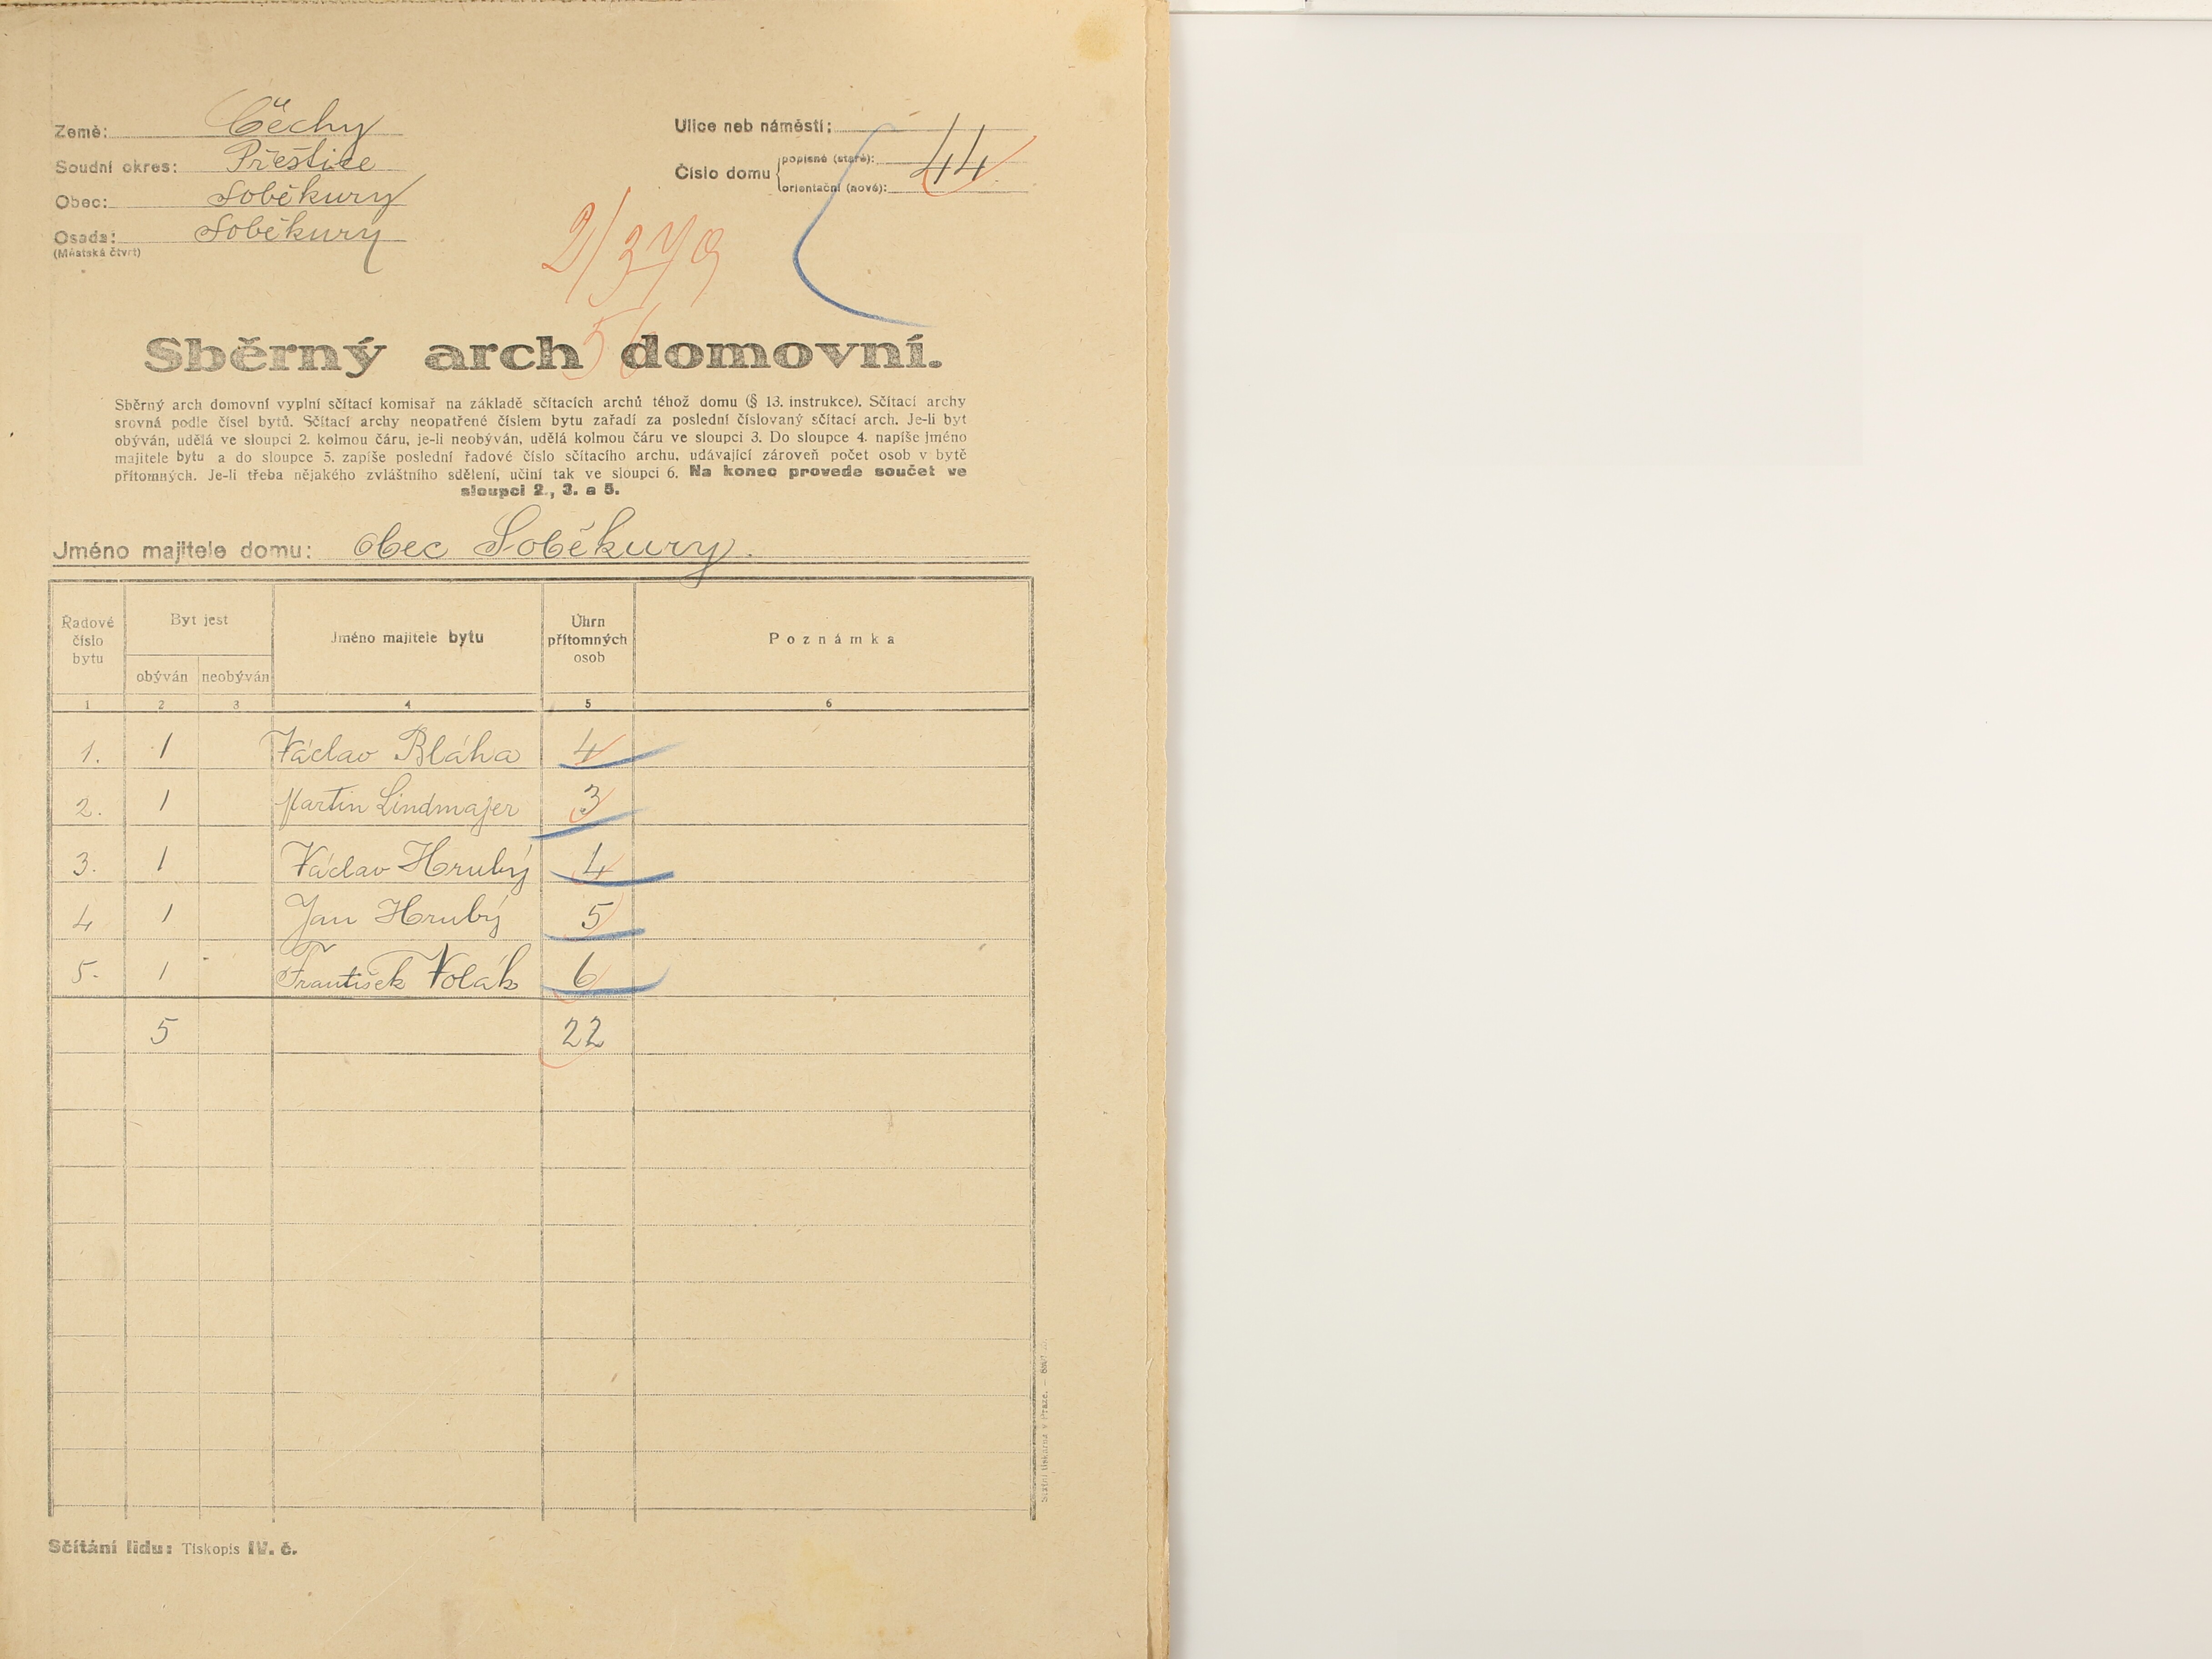 Země: Čechy
Soudní okres: Přeštice
Obec: Soběkury
Osada: Soběkury
(Městská čtvrť)
Ulice neb náměstí:
Číslo domu
popisné (staré): 44
orientační (nové):
2/379
56
Sběrný arch domovní.
Sběrný arch domovní vyplní sčítací komisař na základě sčítacích archů téhož domu (§ 13. instrukce). Sčítací archy
srovná podle čísel bytů. Sčítací archy neopatřené číslem bytu zařadí za poslední číslovaný sčítací arch. Je-li byt
obýván, udělá ve sloupci 2. kolmou čáru, je-li neobýván, udělá kolmou čáru ve sloupci 3. Do sloupce 4. napíše jméno
majitele bytu a do sloupce 5. zapíše poslední řadové číslo sčítacího archu, udávající zároveň počet osob v bytě
přítomných. Je-li třeba nějakého zvláštního sdělení, učiní tak ve sloupci 6. Na konec provede součet ve
sloupci 2., 3. a 5.
Jméno majitele domu: Obec Soběkury.
Řadové číslo bytu
Byt jest
obýván
neobýván
Jméno majitele bytu
Úhrn přítomných osob
Poznámka
1 2 3 4 5 6
1. 1 Václav Bláha 4
2. 1 Martin Lindmajer 3
3. 1 Václav Hrubý 4
4 1 Jan Hrubý 5
5. 1 František Volák 6
5 22
Sčítání lidu: Tiskopis IV. č.
Státní tiskárna v Praze.